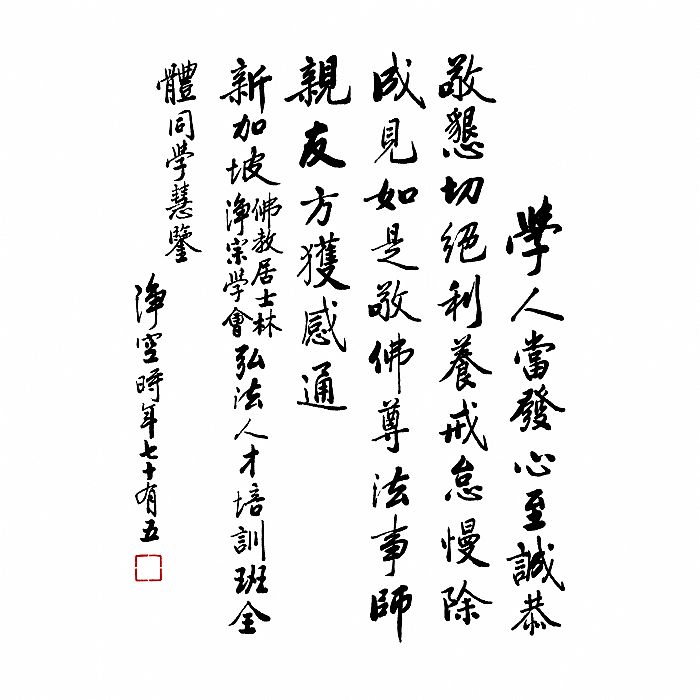 學人當發心至誠恭
敬懇切絕利養戒怠慢除
成見如是敬佛尊法事師
親友方獲感通
新加坡佛教居士林淨宗學會弘法人才培訓班全
體同學慧鑒
淨空時年七十有五